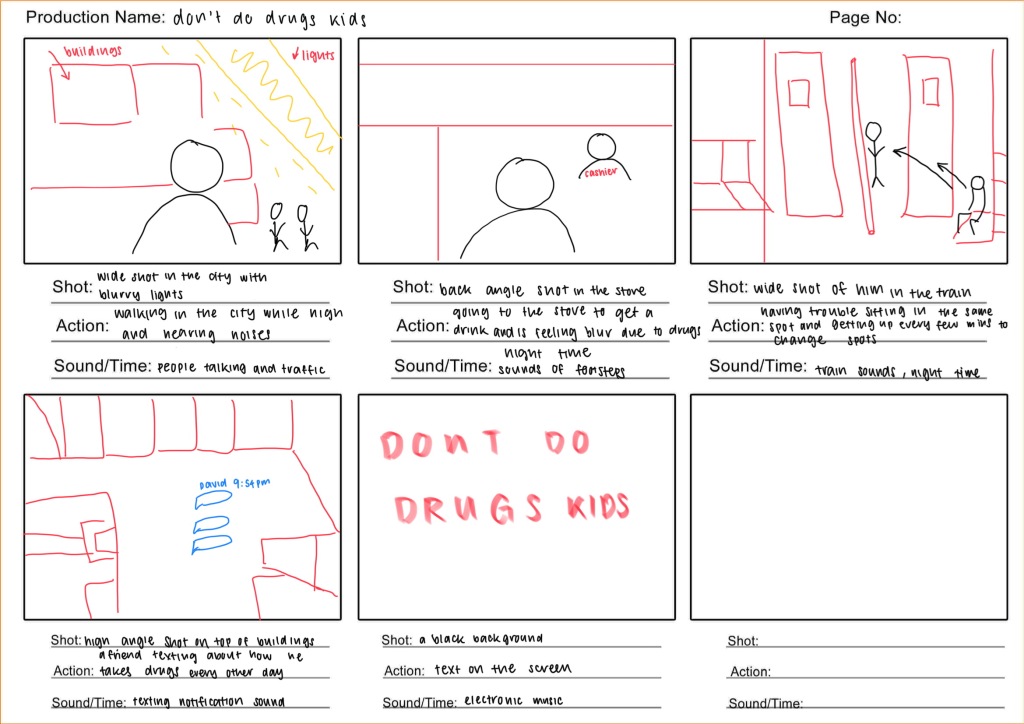 Production Name: don't do drugs kids
Page No:
buildings
lights
Shot: wide shot in the city with
blurry lights
Action: walking in the city while high
and hearing noises
Sound/Time: people talking and traffic
cashier
Shot: back angle shot in the store
going to the store to get a
Action: drink and is feeling blur due to drugs
night time
Sound/Time: sounds of footsteps
Shot: wide shot of him in the train
having trouble sitting in the same
Action: spot and getting up every few mins to
change spots
Sound/Time: train sounds, night time
David 9:54pm
Shot: high angle shot on top of buildings
a friend texting about how he
Action: takes drugs every other day
Sound/Time: texting notification sound
DONT DO
DRUGS KIDS
Shot: a black background
Action: text on the screen
Sound/Time: electronic music
Shot:
Action:
Sound/Time: